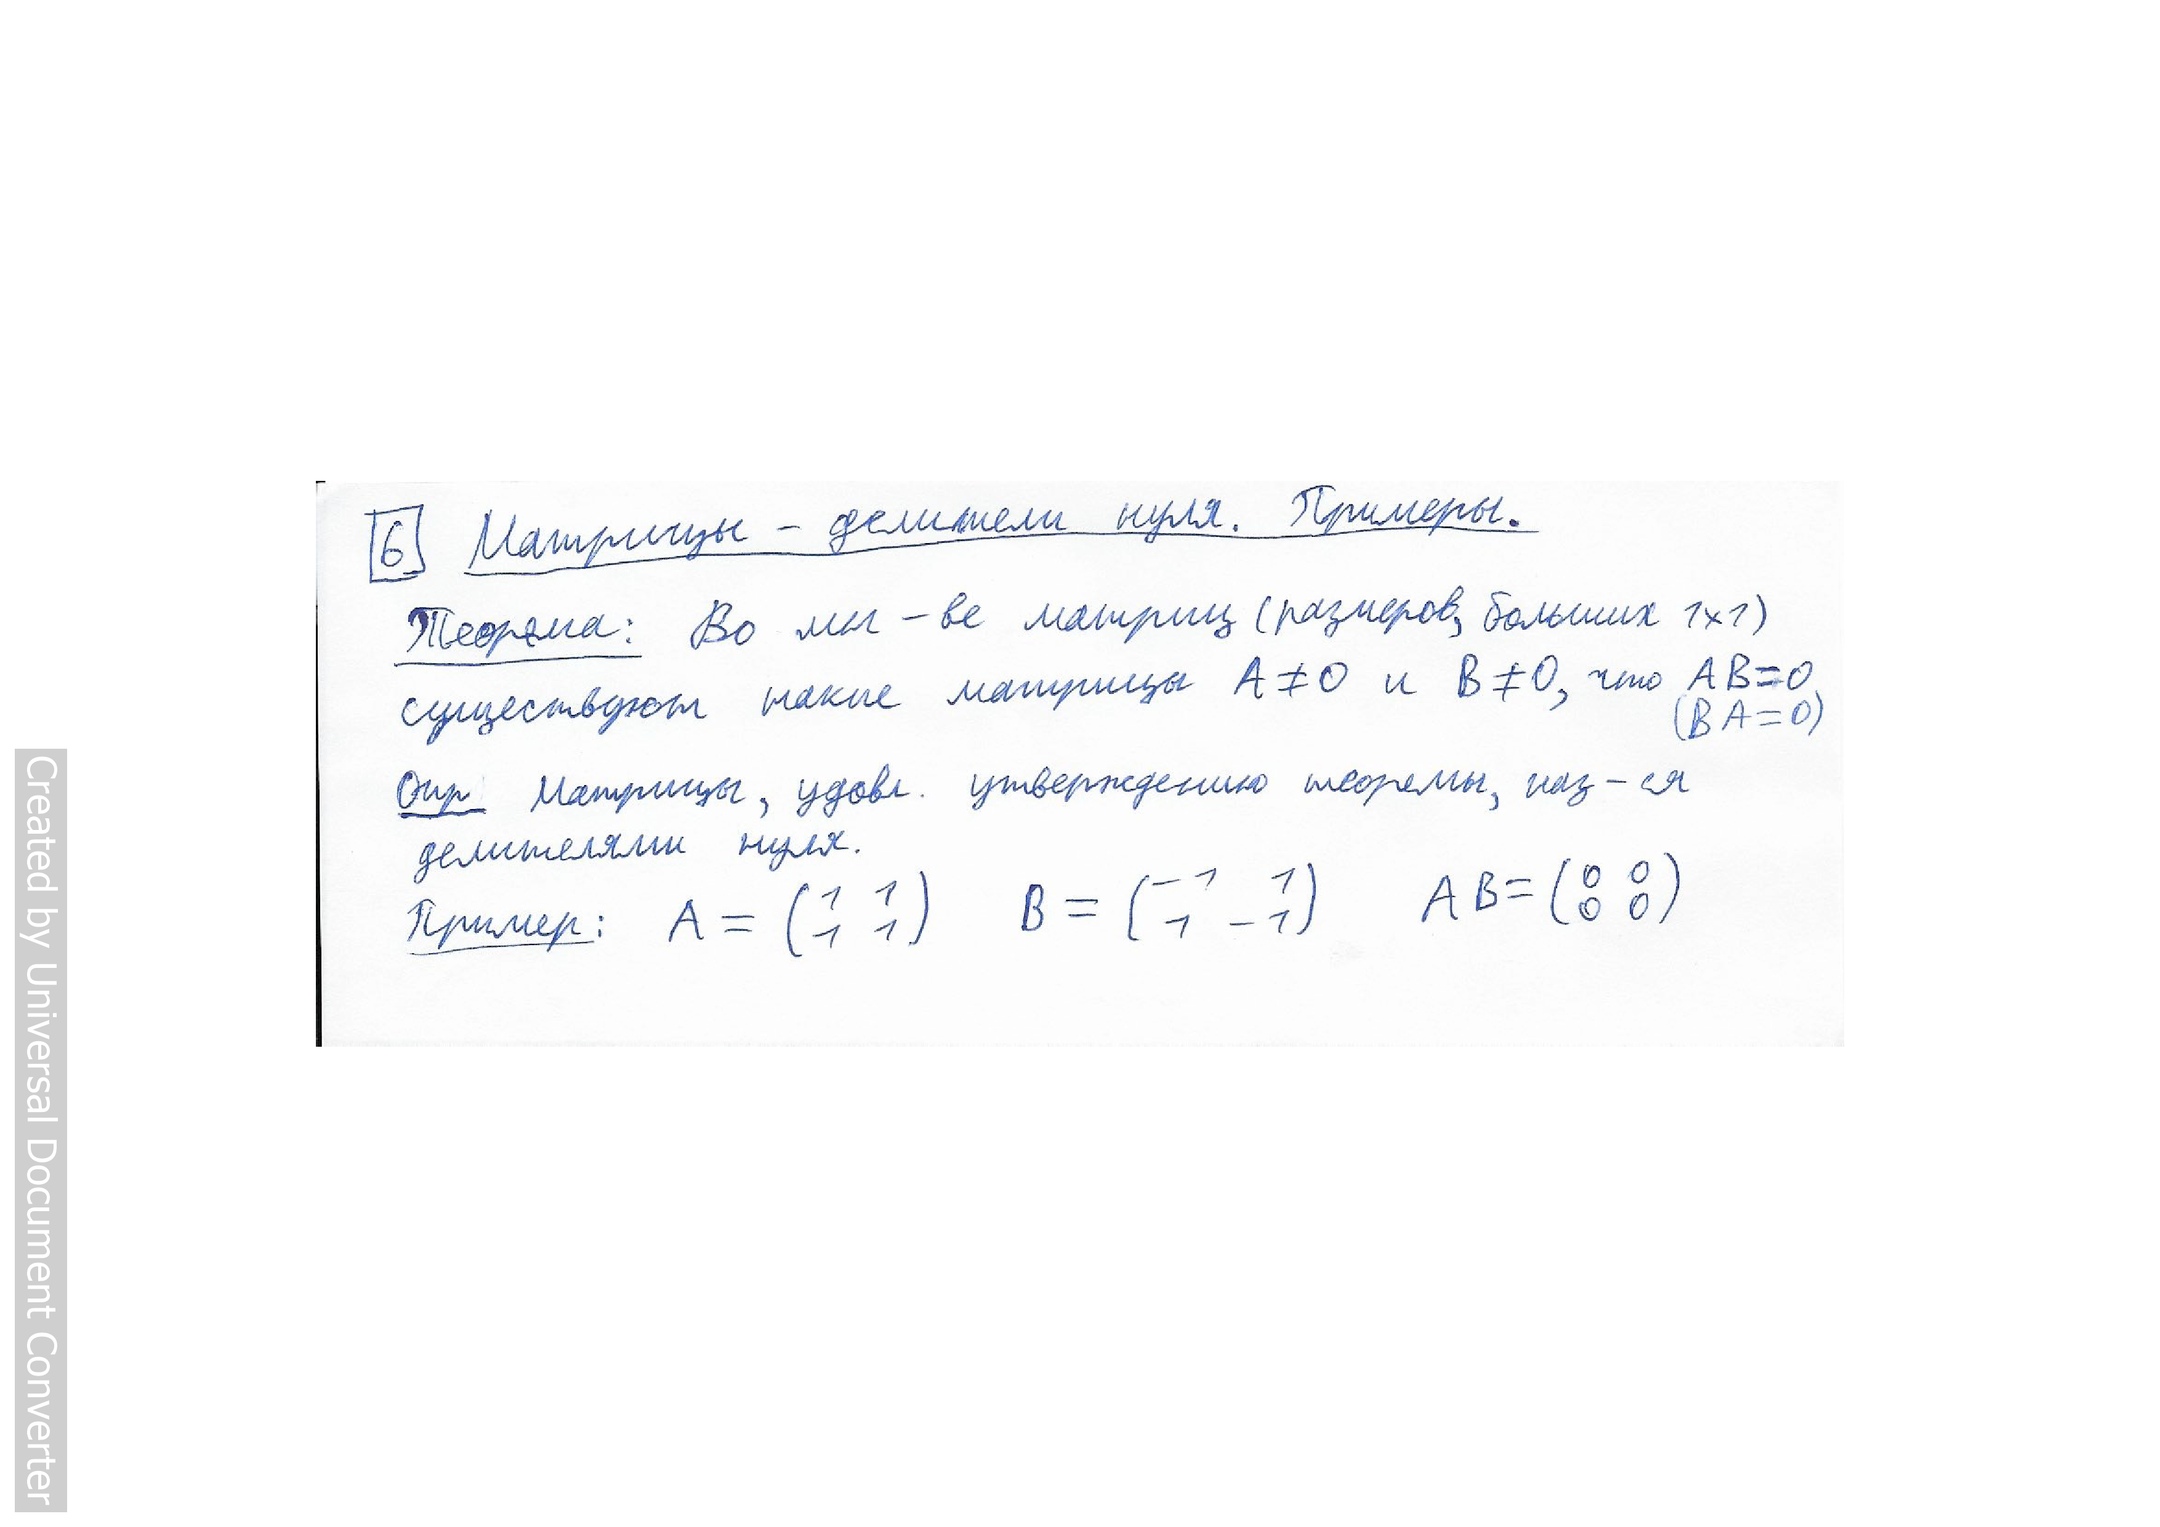 6 Матрицы – делители нуля. Примеры.
Теорема: Во мн-ве матриц (размеров, больших 1×1)
существуют такие матрицы A≠0 и B≠0, что AB=0
(BA=0)
Опр Матрицы, удовл. утверждению теоремы, наз-ся
делителями нуля.
Пример: A = (1 1 B = (-1 1 AB = (0 0
1 1) 1 -1) 0 0)
Created by Universal Document Converter